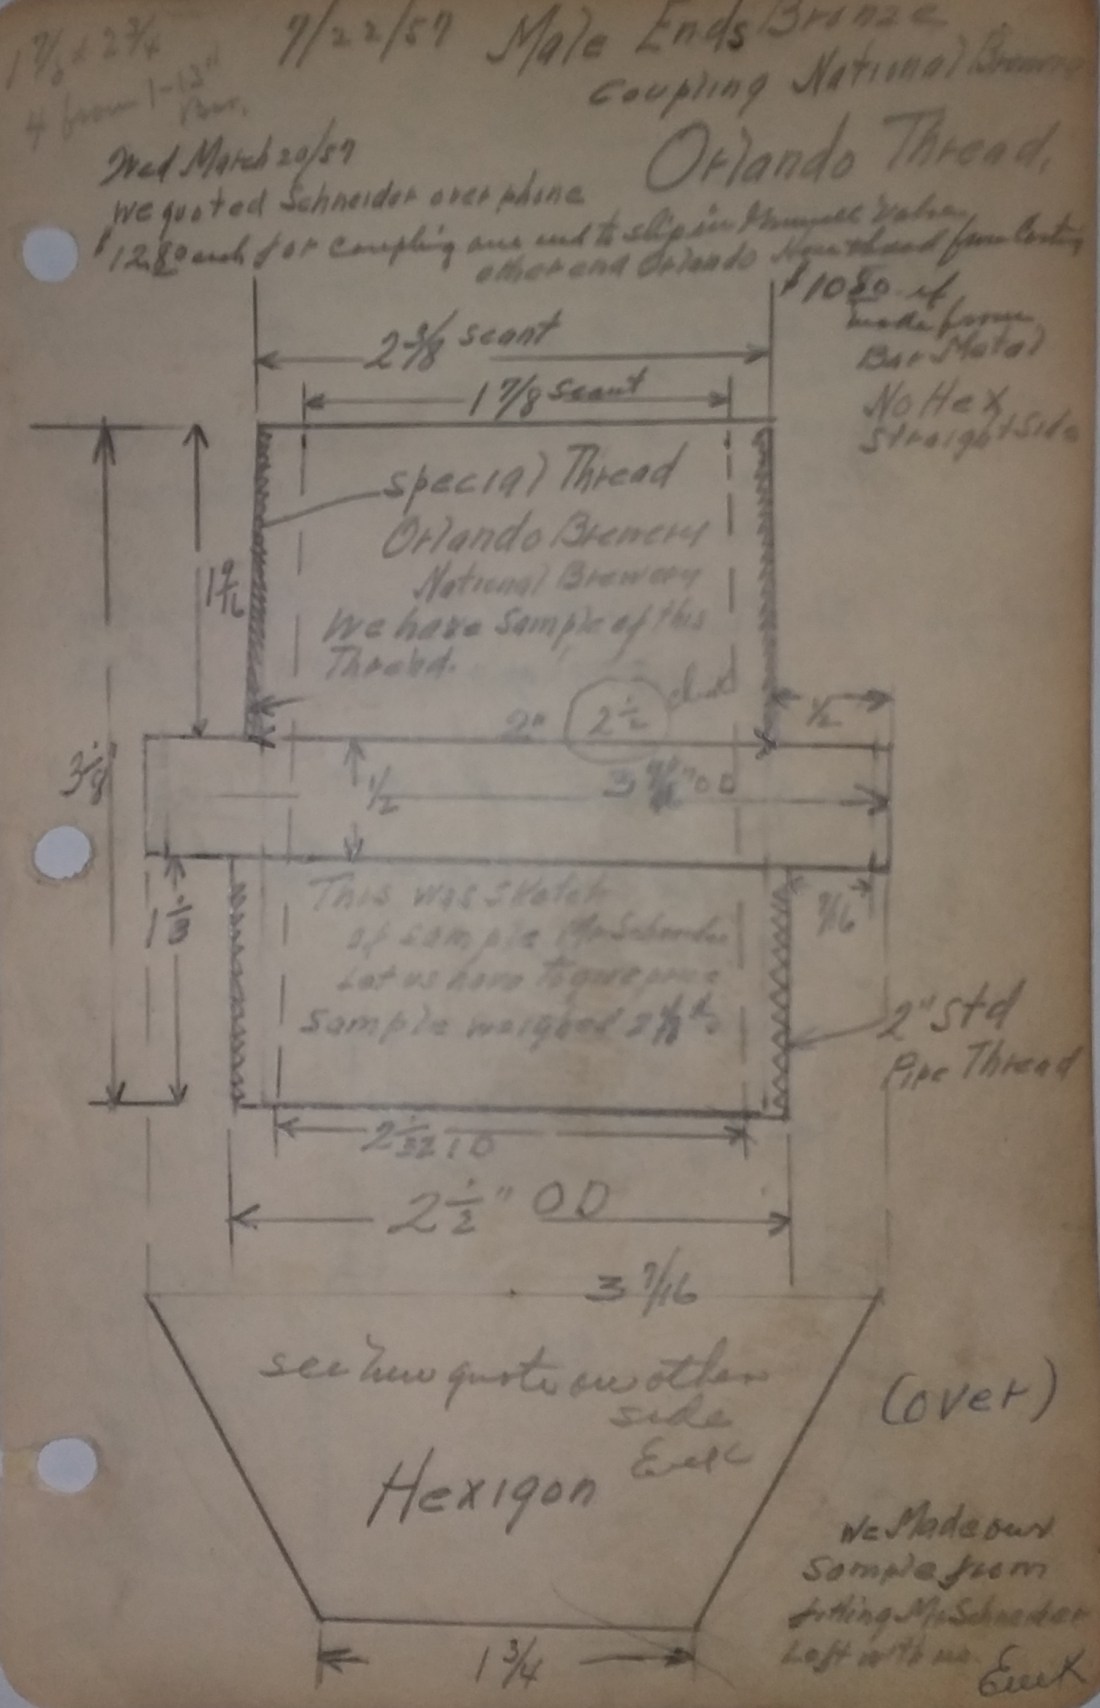 1 7/8 + 2 3/4
4 from 1-13"
Bar.
7/22/57 Male Ends Bronze
Coupling National Brewery
Orlando Thread.
Wed March 20/57
We quoted Schneider over phone
$12.80 each for coupling one end to slip in Valve
other end Orlando thread from Casting
$10 50 if
made from
Bar Metal
No Hex
Straight Side
2 3/8 scant
1 7/8 scant
Special Thread
Orlando Brewery
National Brewery
We have Sample of this
Thread.
1 9/16
3 1/8
2" 2 1/2
1/2
1/2
3 7/16" OD
This was Sketch
of sample Mr Schneider
Let us have to give price
Sample weighed
1 1/8
7/16
2" Std
Pipe Thread
2 1/32 ID
2 1/2" OD
3 7/16
see new quote on other
side
Hexigon
(over)
1 3/4
We Made our
Sample from
fitting Mr Schneider
Left with us.